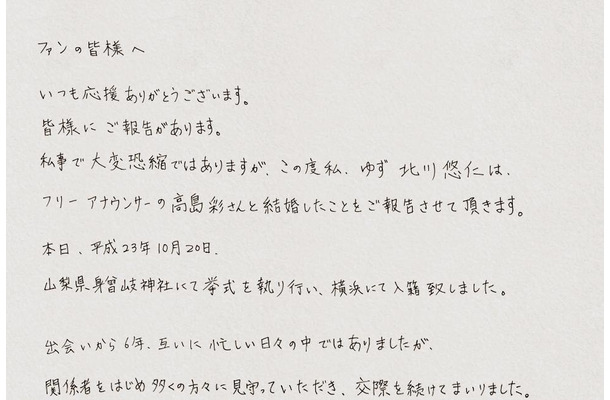 ファンの皆様へ
いつも応援ありがとうございます。
皆様に ご報告があります。
私事で大変恐縮ではありますが、この度私、ゆず 北川悠仁は、
フリーアナウンサーの高島彩さんと結婚したことをご報告させて頂きます。
本日、平成23年10月20日、
山梨県身曾岐神社にて挙式を執り行い、横浜にて入籍致しました。
出会いから6年、互いに忙しい日々の中ではありましたが、
関係者をはじめ多くの方々に見守っていただき、交際を続けてまいりました。